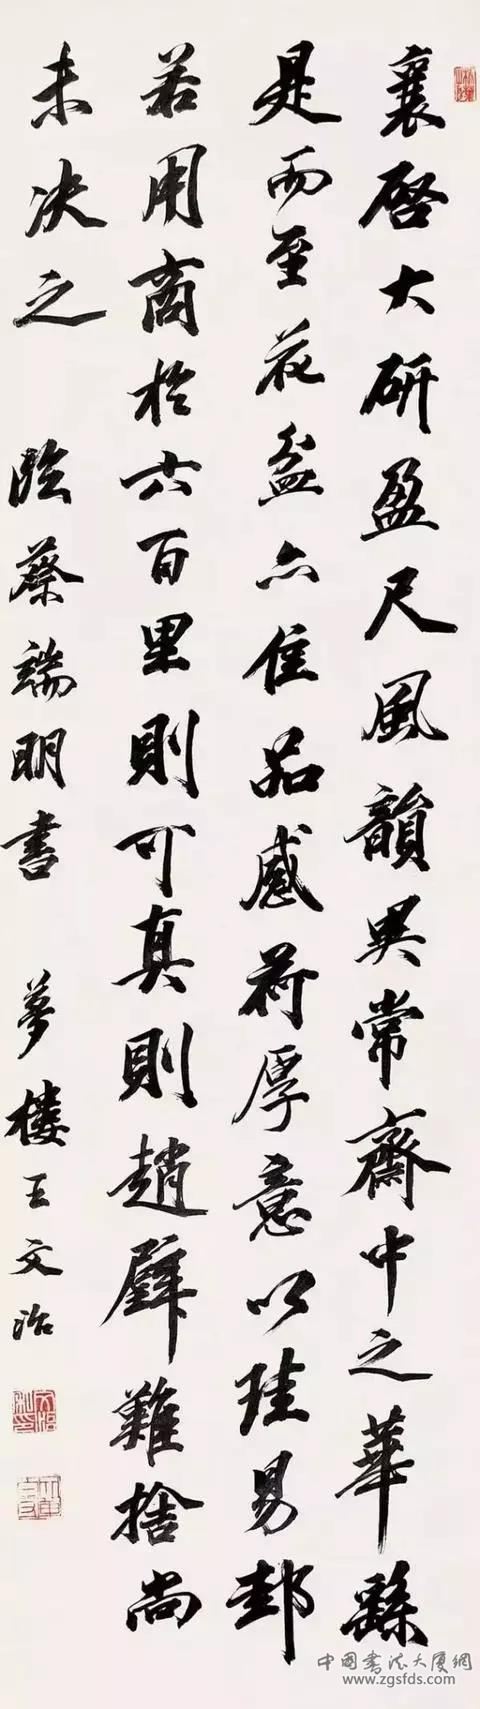 襄啓大研盈尺風韻異常齋中之華繇
是而至花盆亦佳品感荷厚意以珪易邽
若用商於六百里則可真則趙璧難捨尚
未决之 臨蔡端明書 夢樓王文治
中國書法大廈網
www.zgsfds.com